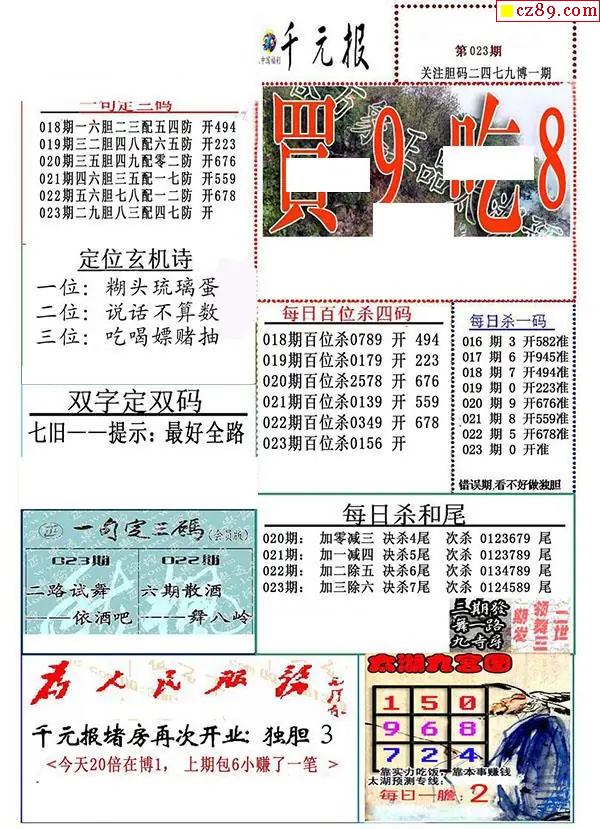 cz89.com
千元报
中国福彩
第023期
关注胆码二四七九博一期
一句定三码
018期一六胆二三配五四防 开494
019期三二胆四八配六五防 开223
020期三五胆四九配零二防 开676
021期四六胆三五配一七防 开559
022期五六胆七八配一二防 开678
023期二九胆八三配四七防 开
買9吃8
定位玄机诗
一位：糊头琉璃蛋
二位：说话不算数
三位：吃喝嫖赌抽
每日百位杀四码
018期百位杀0789 开 494
019期百位杀0179 开 223
020期百位杀2578 开 676
021期百位杀0139 开 559
022期百位杀0349 开 678
023期百位杀0156 开
每日杀一码
016 期 3 开582准
017 期 6 开945准
018 期 7 开494准
019 期 0 开223准
020 期 9 开676准
021 期 8 开559准
022 期 5 开678准
023 期 0 开准
错误期，看不好做独胆
双字定双码
七旧——提示：最好全路
一句定三码(会员版)
023期
022期
二路试舞
六期散酒
——依酒吧
——舞八岭
每日杀和尾
020期： 加零减三 决杀4尾 次杀 0123679 尾
021期： 加一减四 决杀5尾 次杀 0123789 尾
022期： 加二除五 决杀6尾 次杀 0134789 尾
023期： 加三除六 决杀7尾 次杀 0124589 尾
为人民服务
千元报堵房再次开业：独胆 3
<今天20倍在博1， 上期包6小赚了一笔 >
太湖九宫图
1 5 0
9 6 8
7 2 4
靠实力吃饭，靠本事赚钱
太湖预测专线：
每日一胆：2